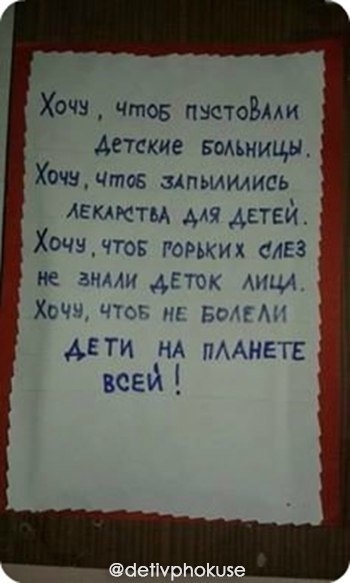 Хочу, чтоб пустовали
детские больницы.
Хочу, чтоб запылились
лекарства для детей.
Хочу, чтоб горьких слез
не знали деток лица.
Хочу, чтоб не болели
дети на планете
всей!
@detivphokuse